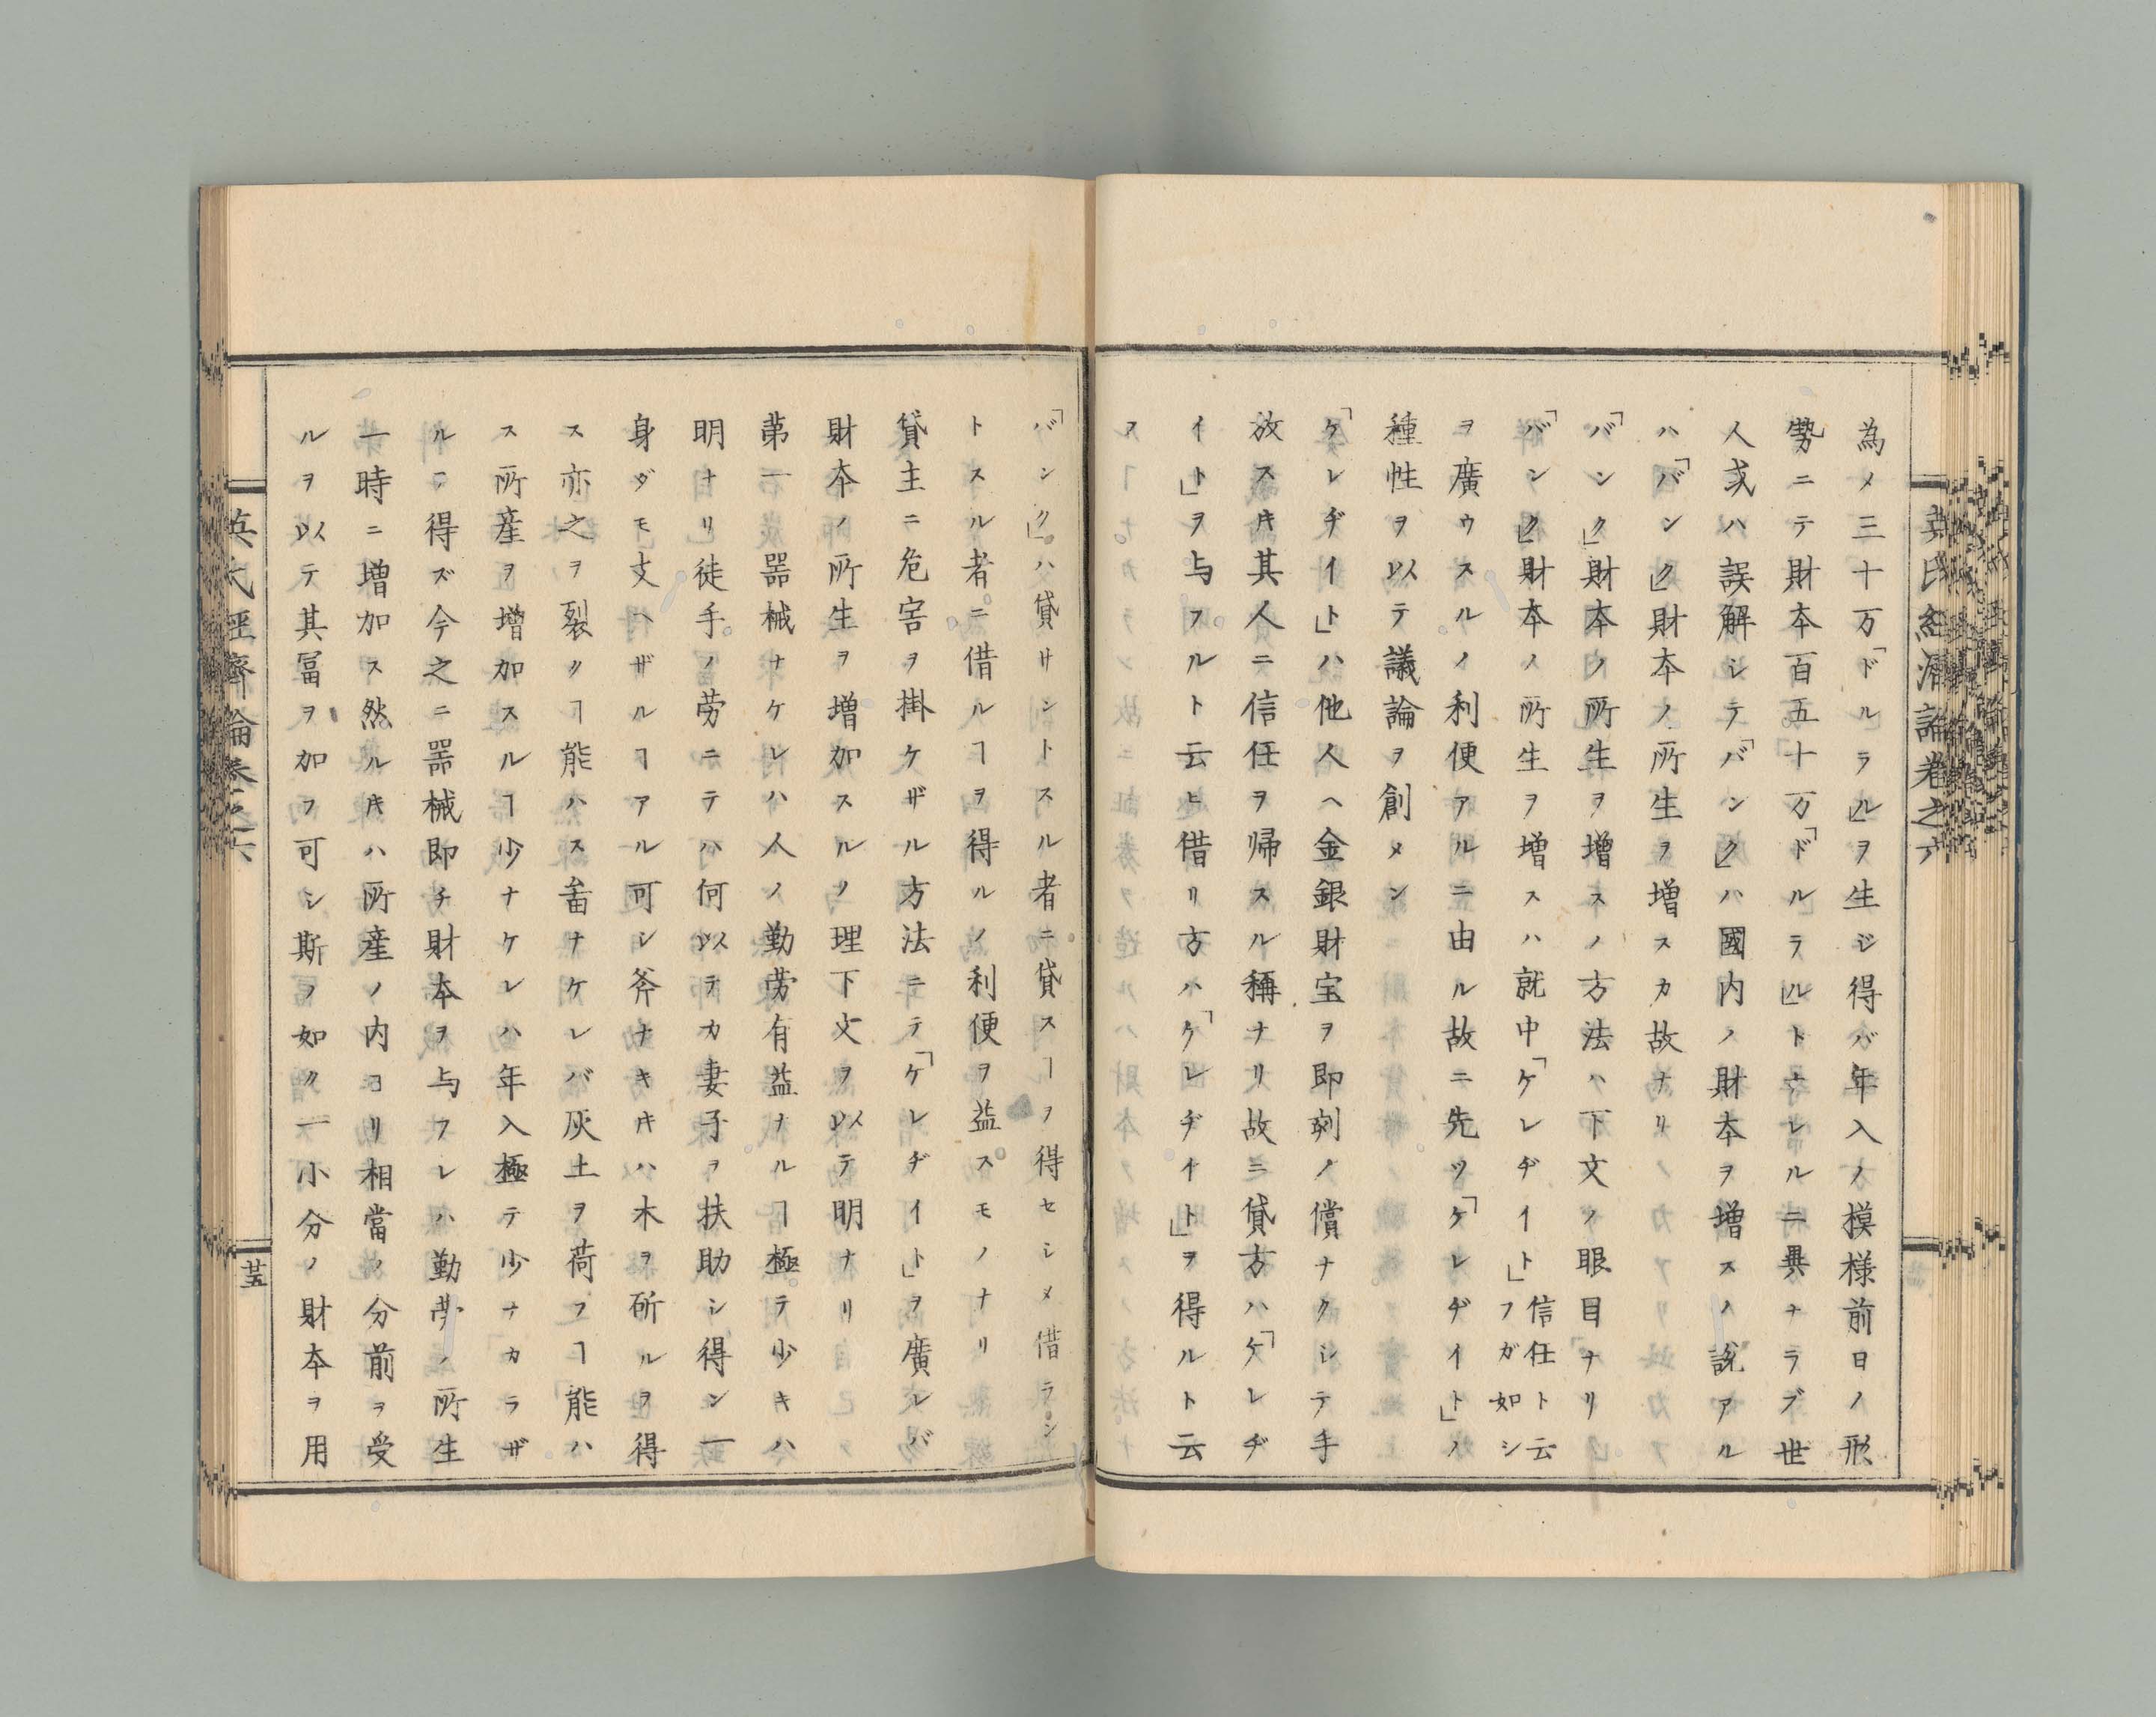 英氏経済論巻之六
為メ三十万「ドルラル」ヲ生ジ得バ年入ノ模様前日ノ形
勢ニテ財本百五十万「ドルラル」トナレルニ異ナラズ世
人或ハ誤解シテ「バンク」ハ國内ノ財本ヲ増スノ說アル
ハ「バンク」財本ノ所生ヲ増スカ故ナリ
「バンク」財本ノ所生ヲ増スノ方法ハ下文ノ眼目ナリ
「バンク」財本ノ所生ヲ増スハ就中「ケレヂイト」信任ト云フガ如シ
ヲ廣ウスルノ利便アルニ由ル故ニ先ツ「ケレヂイト」ノ
種性ヲ以テ議論ヲ創メン
「ケレヂイト」ハ他人ヘ金銀財宝ヲ即刻ノ償ナクシテ手
放スキ其人ニ信任ヲ帰スル稱ナリ故ニ貸方ハ「ケレヂ
イト」ヲ与フルト云ヒ借リ方ハ「ケレヂイト」ヲ得ルト云
フ
「バンク」ハ貸サントスル者ニ貸スヿヲ得セシメ借ラン
トスル者ニ借ルヿヲ得ルノ利便ヲ益スモノナリ
貸主ニ危害ヲ掛ケザル方法ニテ「ケレヂイト」ヲ廣レバ
財本ノ所生ヲ増加スルノ理下文ヲ以テ明ナリ
苐一器械ナケレハ人ノ勤労有益ナルヿ極テ少キハ
明ナリ徒手ノ労ニテハ何以テカ妻子ヲ扶助シ得ン一
身ダモ支ヘザルヿアル可シ斧ナキキハ木ヲ斫ルヲ得
ス亦之ヲ裂クヿ能ハス畚ナケレバ灰土ヲ荷フヿ能ハ
ス所産ヲ増加スルヿ少ナケレハ年入極テ少ナカラザ
ルヿ得ズ今之ニ器械即チ財本ヲ与フレハ勤労ノ所生
一時ニ増加ス然ルキハ所産ノ内ヨリ相當ノ分前ヲ受
ルヲ以テ其冨ヲ加フ可シ斯ノ如ク一小分ノ財本ヲ用
英氏經濟論卷之六
廿五